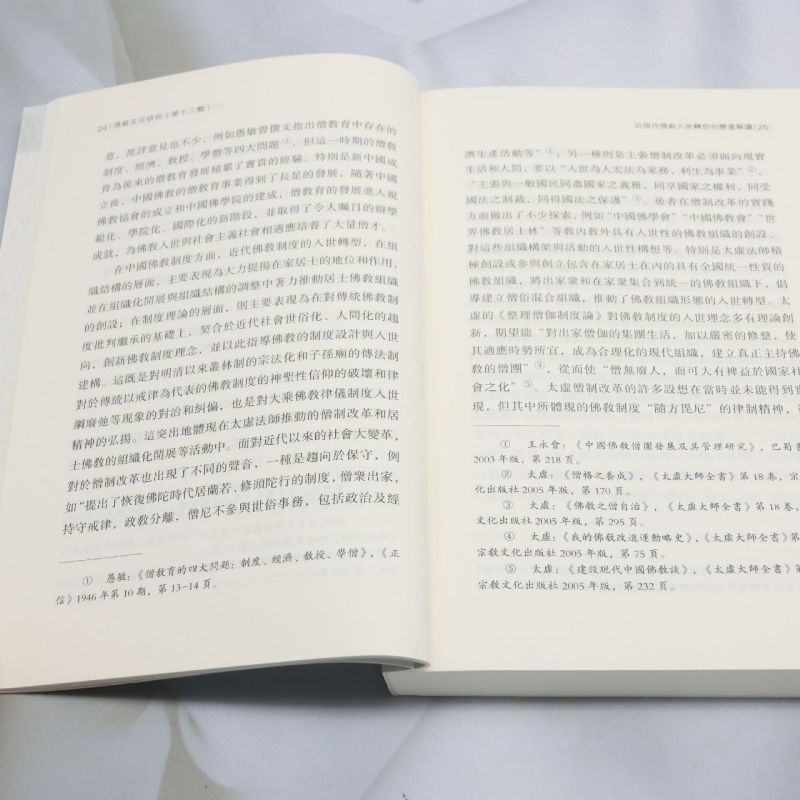 24 | 佛教文化研究（第十二輯）
意，批評意見也不少，例如愚敏曾撰文指出僧教育中存在的
制度、經濟、教授、學僧等四大問題①，但這一時期的僧教
育為後來的僧教育發展積累了寶貴的經驗。特別是新中國成
立後，中國佛教的僧教育事業得到了長足的發展，隨著中國
佛教協會的成立和中國佛學院的建成，僧教育的發展進入規
範化、學院化、國際化的新階段，並取得了令人矚目的辦學
成就，為佛教入世與社會主義社會相適應培養了大量僧才。
在中國佛教制度方面，近代佛教制度的入世轉型，在組
織結構的層面，主要表現為大力提揚在家居士的地位和作用，
並在組織化開展與組織結構的調整中著力推動居士佛教組織
的創設；在制度理論的層面，則主要表現為在對傳統佛教制
度批判繼承的基礎上，契合於近代社會世俗化、人間化的趨
向，創新佛教制度理念，並以此指導佛教的制度設計與入世
建構。這既是對明清以來叢林制的宗法化和子孫廟的傳法制
對於傳統以戒律為代表的佛教制度的神聖性信仰的破壞和律
綱廢弛等現象的對治和糾偏，也是對大乘佛教律儀制度入世
精神的弘揚。這突出地體現在太虛法師推動的僧制改革和居
士佛教的組織化開展等活動中。面對近代以來的社會大變革，
對於僧制改革也出現了不同的聲音，一種是趨向於保守，例
如“提出了恢復佛陀時代居蘭若、修頭陀行的制度，僧衆出家，
持守戒律，政教分離，僧尼不參與世俗事務，包括政治及經
① 愚敏：《僧教育的四大問題：制度、經濟、教授、學僧》，《正
信》1946 年第 10 期，第 13—14 頁。
近現代佛教入世轉型的雙重解讀 | 25
濟生產活動等”①；另一種則是主張僧制改革必須面向現實
生活和人間，要以“入世為人宏法為家務，利生為事業”②，
“主張與一般國民同盡國家之義務，同享國家之權利，同受
國法之制裁，同得國法之保護”③。後者在僧制改革的實踐
方面做出了不少探索，例如“中國佛學會”“中國佛教會”“世
界佛教居士林”等教內教外具有人世性的佛教組織的創設。
對這些組織構架與活動的人世性構想等。特別是太虛法師積
極創設或參與創立包含在家居士在內的具有全國統一性質的
佛教組織，將出家衆和在家衆集合到統一的佛教組織下，倡
導建立僧俗混合組織，推動了佛教組織形態的人世轉型。太
虛的《整理僧伽制度論》對佛教制度的人世理念多有理論創
新，期望能“對出家僧伽的集團生活，加以嚴密的修整，使
其適應時勢所宜，成為合理化的現代組織，建立真正主持佛
教的僧團”④，從而使“僧無廢人，而可大有裨益於國家社
會之化”⑤。太虛僧制改革的許多設想在當時並未能得到實
現，但其中所體現的佛教制度“隨方毘尼”的律制精神，
① 王永會：《中國佛教僧團發展及其管理研究》，巴蜀書
2003 年版，第 218 頁。
② 太虛：《僧格之養成》，《太虛大師全書》第 18 卷，宗
化出版社 2005 年版，第 170 頁。
③ 太虛：《佛教之僧自治》，《太虛大師全書》第 18 卷，
文化出版社 2005 年版，第 295 頁。
④ 太虛：《我的佛教改進運動略史》，《太虛大師全書》第
宗教文化出版社 2005 年版，第 75 頁。
⑤ 太虛：《建設現代中國佛教談》，《太虛大師全書》第
宗教文化出版社 2005 年版，第 232 頁。